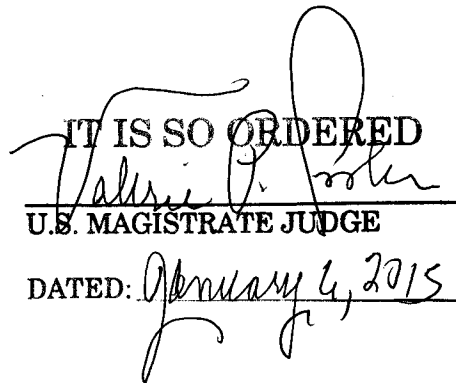 IT IS SO ORDERED
Valerie P.
U.S. MAGISTRATE JUDGE
DATED: January 6, 2015